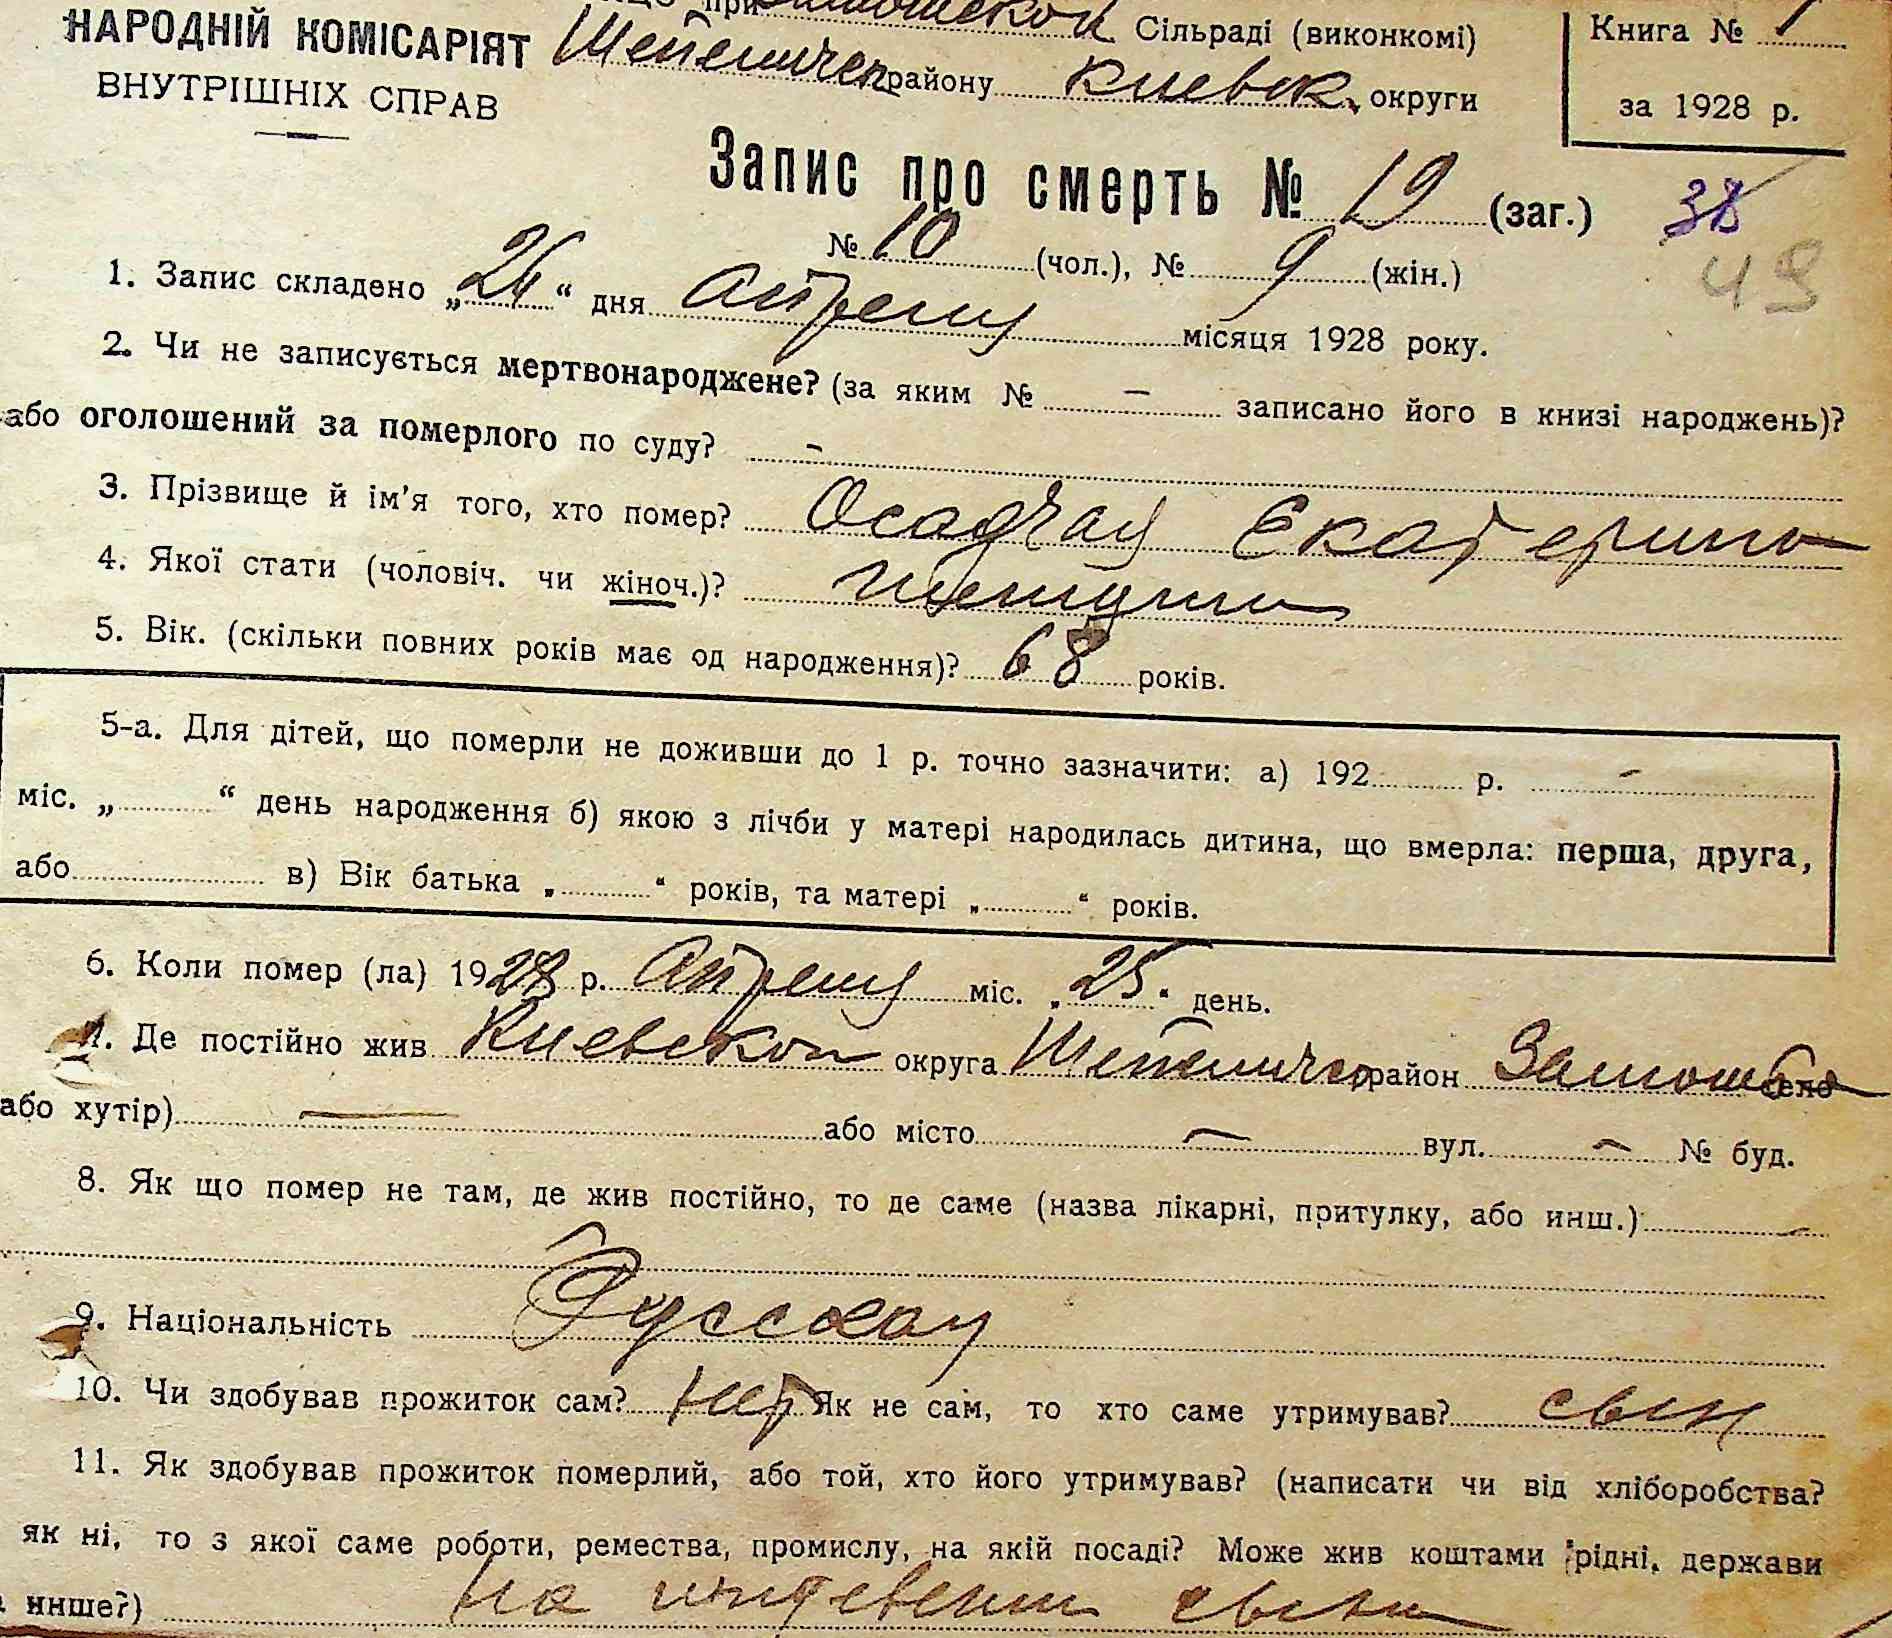 при Замошской Сільраді (виконкомі)
НАРОДНІЙ КОМІСАРІЯТ
ВНУТРІШНІХ СПРАВ
Шепелич району Киевск. округи
Книга № 1
за 1928 р.
Запис про смерть № 19 (заг.)
№ 10 (чол.), № 9 (жін.)
38
49
1. Запис складено „26“ дня Апреля місяця 1928 року.
2. Чи не записується мертвонароджене? (за яким № – записано його в книзі народжень)?
або оголошений за померлого по суду? –
3. Прізвище й ім'я того, хто помер? Осадчая Екатерина
4. Якої стати (чоловіч. чи жіноч.)? женщина
5. Вік. (скільки повних років має од народження)? 68 років.
5-а. Для дітей, що померли не доживши до 1 р. точно зазначити: а) 192 р. –
міс. „ “ день народження б) якою з лічби у матері народилась дитина, що вмерла: перша, друга,
або в) Вік батька „ “ років, та матері „ “ років.
6. Коли помер (ла) 1928 р. Апреля міс. „25“ день.
7. Де постійно жив Киевской округа район село
або хутір) — або місто — вул. — № буд.
8. Як що помер не там, де жив постійно, то де саме (назва лікарні, притулку, або инш.) –
9. Національність Русская
10. Чи здобував прожиток сам? нет Як не сам, то хто саме утримував? сын
11. Як здобував прожиток померлий, або той, хто його утримував? (написати чи від хліборобства?
як ні, то з якої саме роботи, ремества, промислу, на якій посаді? Може жив коштами рідні, держави
инше?) на иждевении сына